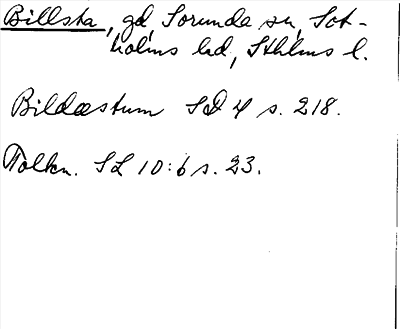 Billsta, gd, Sorunda sn, Sot-
holms hd, Sthlms l.
Bildæstum SD 4 s. 218.
Tolkn. SL 10:6 s. 23.